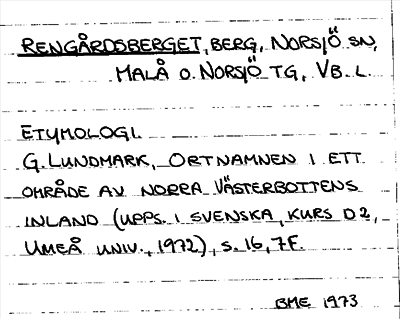 RENGÅRDSBERGET, BERG, NORSJÖ SN,
MALÅ O. NORSJÖ TG, VB. L.
ETYMOLOGI.
G. LUNDMARK, ORTNAMNEN I ETT
OMRÅDE AV NORRA VÄSTERBOTTENS
INLAND (UPPS. I SVENSKA, KURS D2,
UMEÅ UNIV., 1972), S. 16, 7F.
BME 1973